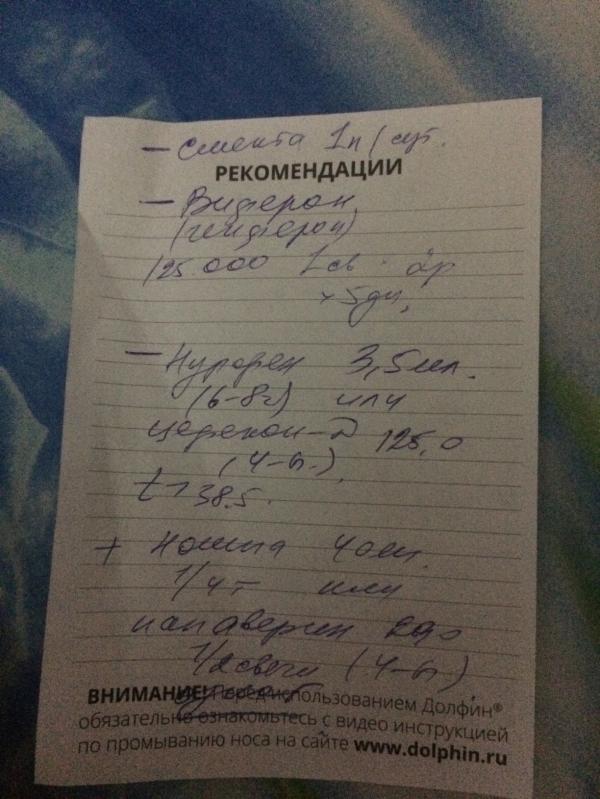 — Смекта 1п/сут.
РЕКОМЕНДАЦИИ
— Виферон
(генферон)
125.000 1св · 2р
× 5дн,
— Нурофен 3,5мл.
(6-8ч) или
цефекон-Д 125,0
(4-6ч.),
t > 38.5.
+ Ношпа 40мг.
1/4т или
папаверин 20,0
1/2 свечи (4-6ч.)
ВНИМАНИЕ! Перед использованием Долфин®
обязательно ознакомьтесь с видео инструкцией
по промыванию носа на сайте www.dolphin.ru